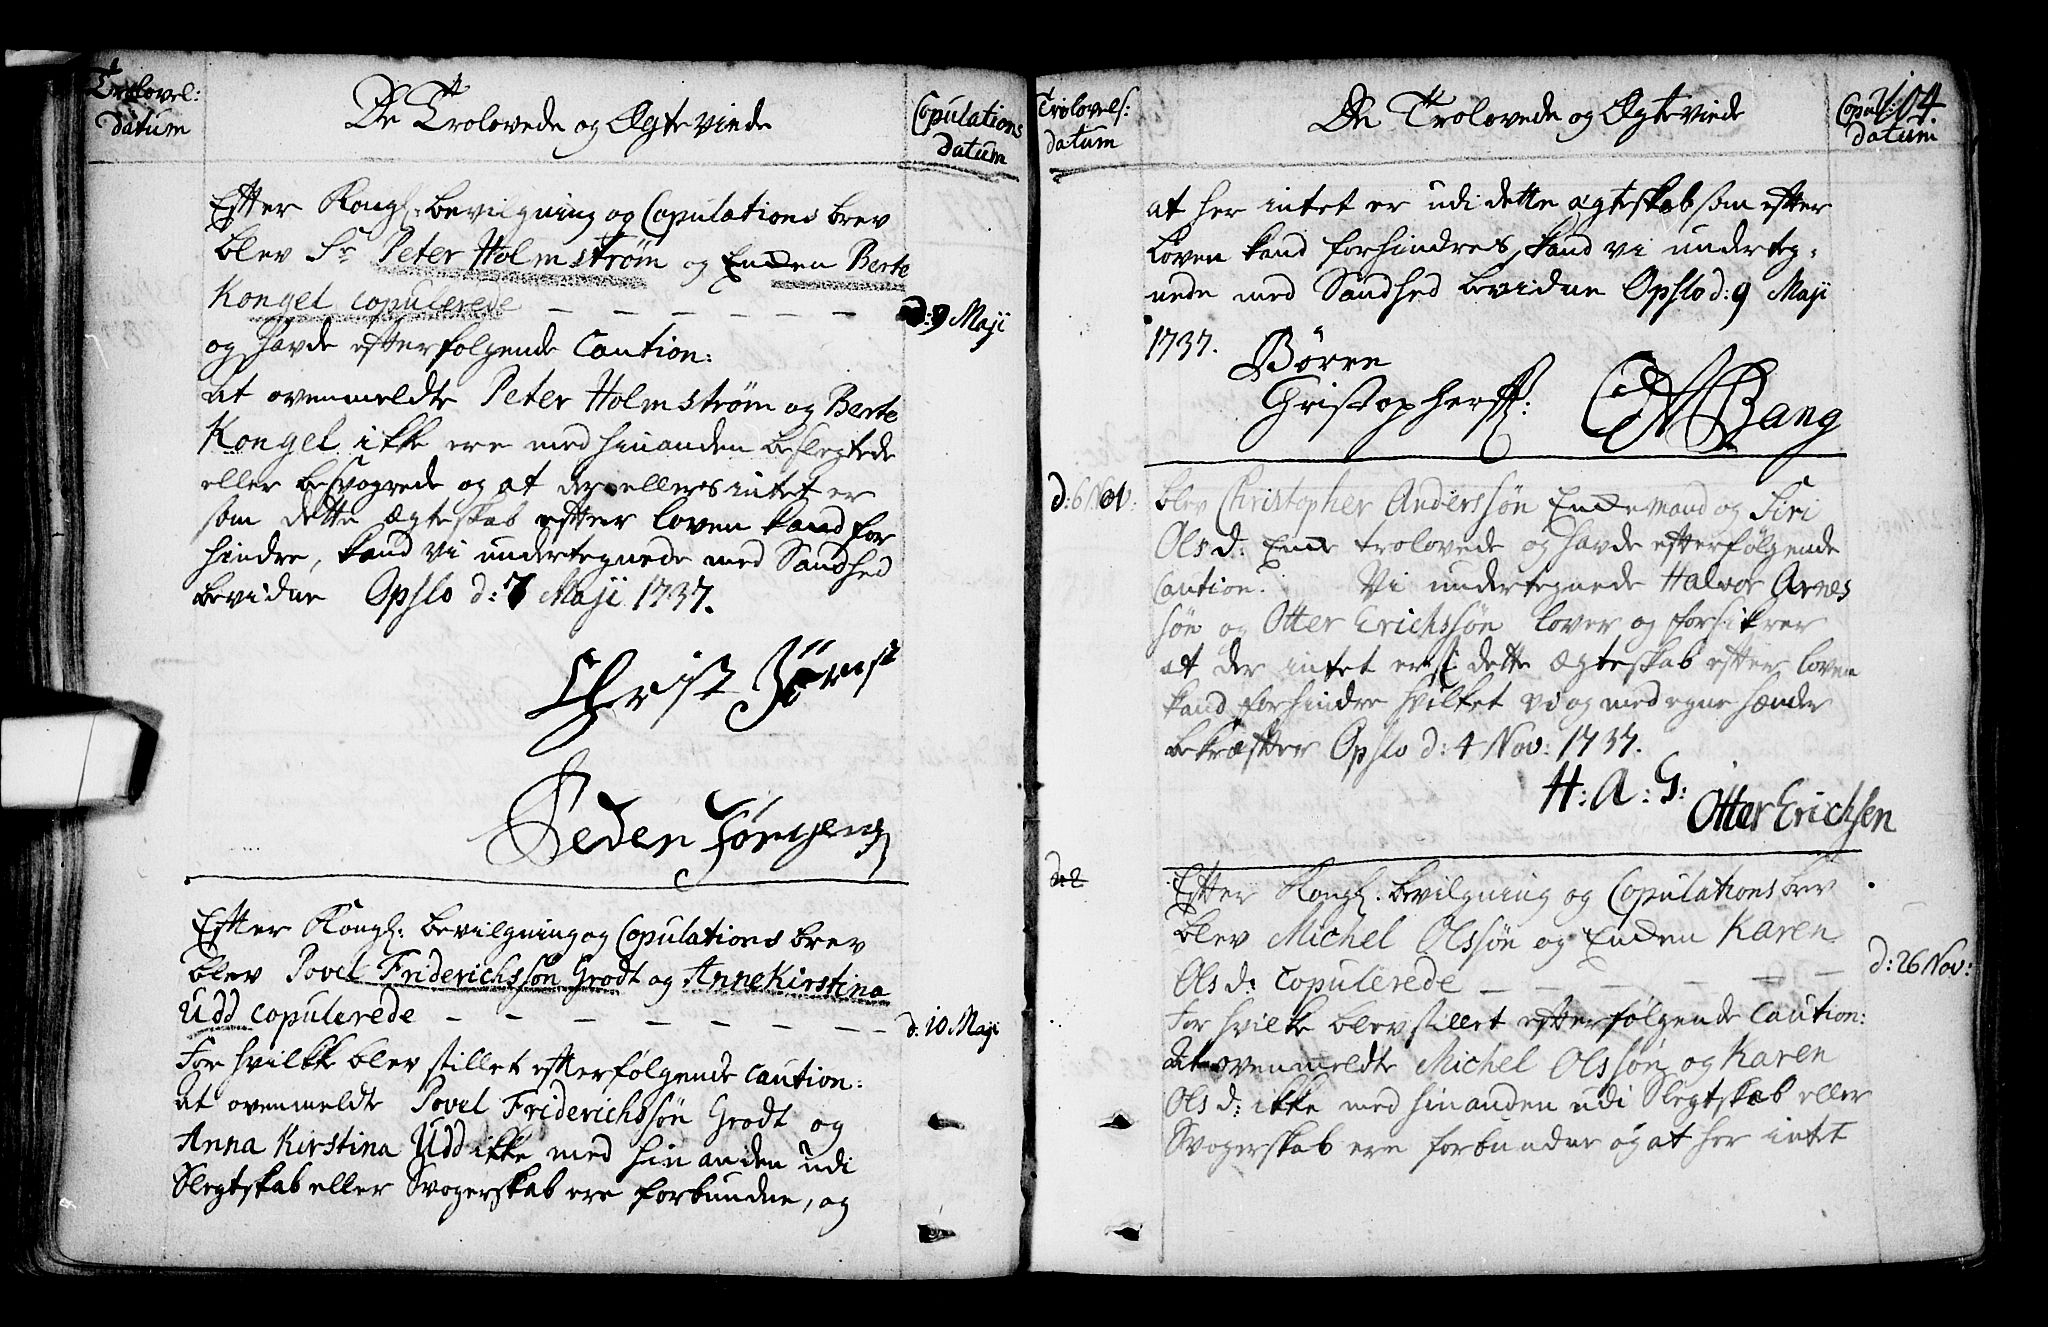 Trolovel:
datum
De Trolovede og Ægteviede
Copulations
datum
Efter Kongl: bevilgning og Copulations brev
blev Sr Peter Holmstrøm og Enken Berte
Kongel copulerede — — — — — —
d: 9 Maji
og havde efterfølgende Caution:
at ovenmeldte Peter Holmstrøm og Berte
Kongel ikke ere med hinanden beslegtede
eller besvogrede og at der ellers intet er
som dette Ægteskab efter loven kand for
hindre, kand vi undertegnede med Sandhed
bevidne Opslo d: 7 Maji 1737.
Christ
Peder
Efter Kongl: bevilgning og Copulations brev
blev Povel Friderichssøn Grodt og Anne Kirstina
Udd copulerede — — — — — — —
d: 10 Maji
For hvilke blev stillet efterfølgende caution:
at ovenmeldte Povel Friderichssøn Grodt og
Anna Kirstina Udd ikke med hinanden udi
Slegtskab eller Svogerskab ere forbundne, og
Trolovels:
datum
De Trolovede og Ægteviede
Copul:
datum
104.
at her intet er udi dette ægteskab som efter
loven kand forhindres, kand vi underteg-
nede med Sandhed bevidne Opslo d: 9 Maji
1737. Børre
Christophers: Bang
d: 6 Nov: blev Christopher Anderssøn Enkemand og Siri
Olsd: Enke trolovede og havde efterfølgende
Caution: Vi undertegnede Halvor Arnes
søn og Otter Erichssøn lover og forsikrer
at der intet er i dette Ægteskab efter loven
kand forhindre hvilket vi og med egne hænder
bekræfter Opslo d: 4 Nov: 1737.
H: A: S: Otter Erichsen
d: 2
Efter Kongl: bevilgning og Copulations brev
blev Michel Olssøn og Enken Karen
Olsd: copulerede — — — — — —
d: 26 Nov:
For hvilke blev stillet efterfølgende Caution:
At ovenmeldte Michel Olssøn og Karen
Olsd: ikke med hinanden udi Slegtskab eller
Svogerskab ere forbundne og at her intet